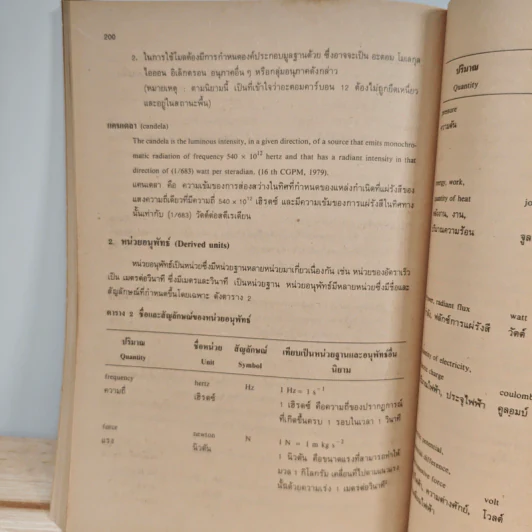 200
2. ในการใช้โมลต้องมีการกำหนดองค์ประกอบมูลฐานด้วย ซึ่งอาจจะเป็น อะตอม โมเลกุล
ไอออน อิเล็กตรอน อนุภาคอื่น ๆ หรือกลุ่มอนุภาคดังกล่าว
(หมายเหตุ : ตามนิยามนี้ เป็นที่เข้าใจว่าอะตอมคาร์บอน 12 ต้องไม่ถูกยึดเหนี่ยว
และอยู่ในสถานะพื้น)
แคนเดลา (candela)
The candela is the luminous intensity, in a given direction, of a source that emits monochro-
matic radiation of frequency 540 × 10¹² hertz and that has a radiant intensity in that
direction of (1/683) watt per steradian. (16 th CGPM, 1979).
แคนเดลา คือ ความเข้มของการส่องสว่างในทิศที่กำหนดของแหล่งกำเนิดที่แผ่รังสีของ
แสงความถี่เดียวที่มีความถี่ 540 × 10¹² เฮิรตซ์ และมีความเข้มของการแผ่รังสีในทิศทาง
นั้นเท่ากับ (1/683) วัตต์ต่อสตีเรเดียน
2. หน่วยอนุพัทธ์ (Derived units)
หน่วยอนุพัทธ์เป็นหน่วยซึ่งมีหน่วยฐานหลายหน่วยมาเกี่ยวเนื่องกัน เช่น หน่วยของอัตราเร็ว
เป็น เมตรต่อวินาที ซึ่งมีเมตรและวินาที เป็นหน่วยฐาน หน่วยอนุพัทธ์มีหลายหน่วยซึ่งมีชื่อและ
สัญลักษณ์ที่กำหนดขึ้นโดยเฉพาะ ดังตาราง 2
ตาราง 2 ชื่อและสัญลักษณ์ของหน่วยอนุพัทธ์
ปริมาณ ชื่อหน่วย สัญลักษณ์ เทียบเป็นหน่วยฐานและอนุพัทธ์อื่น
Quantity Unit Symbol นิยาม
frequency hertz Hz 1 Hz = 1 s⁻¹
ความถี่ เฮิรตซ์ 1 เฮิรตซ์ คือความถี่ของปรากฏการณ์
ที่เกิดขึ้นครบ 1 รอบในเวลา 1 วินาที
force newton N 1 N = 1 m kg s⁻²
แรง นิวตัน 1 นิวตัน คือขนาดแรงที่สามารถทำให้
มวล 1 กิโลกรัม เคลื่อนที่ไปตามแนวแรง
นั้นด้วยความเร่ง 1 เมตรต่อวินาที
ปริมาณ
Quantity
ความดัน
work,
quantity of heat
งาน,
ปริมาณความร้อน จูล
radiant flux watt
ฟลักซ์การแผ่รังสี วัตต์
of electricity,
charge coulomb
ประจุไฟฟ้า คูลอมบ์
potential,
difference,
force volt
ความต่างศักย์, โวลต์